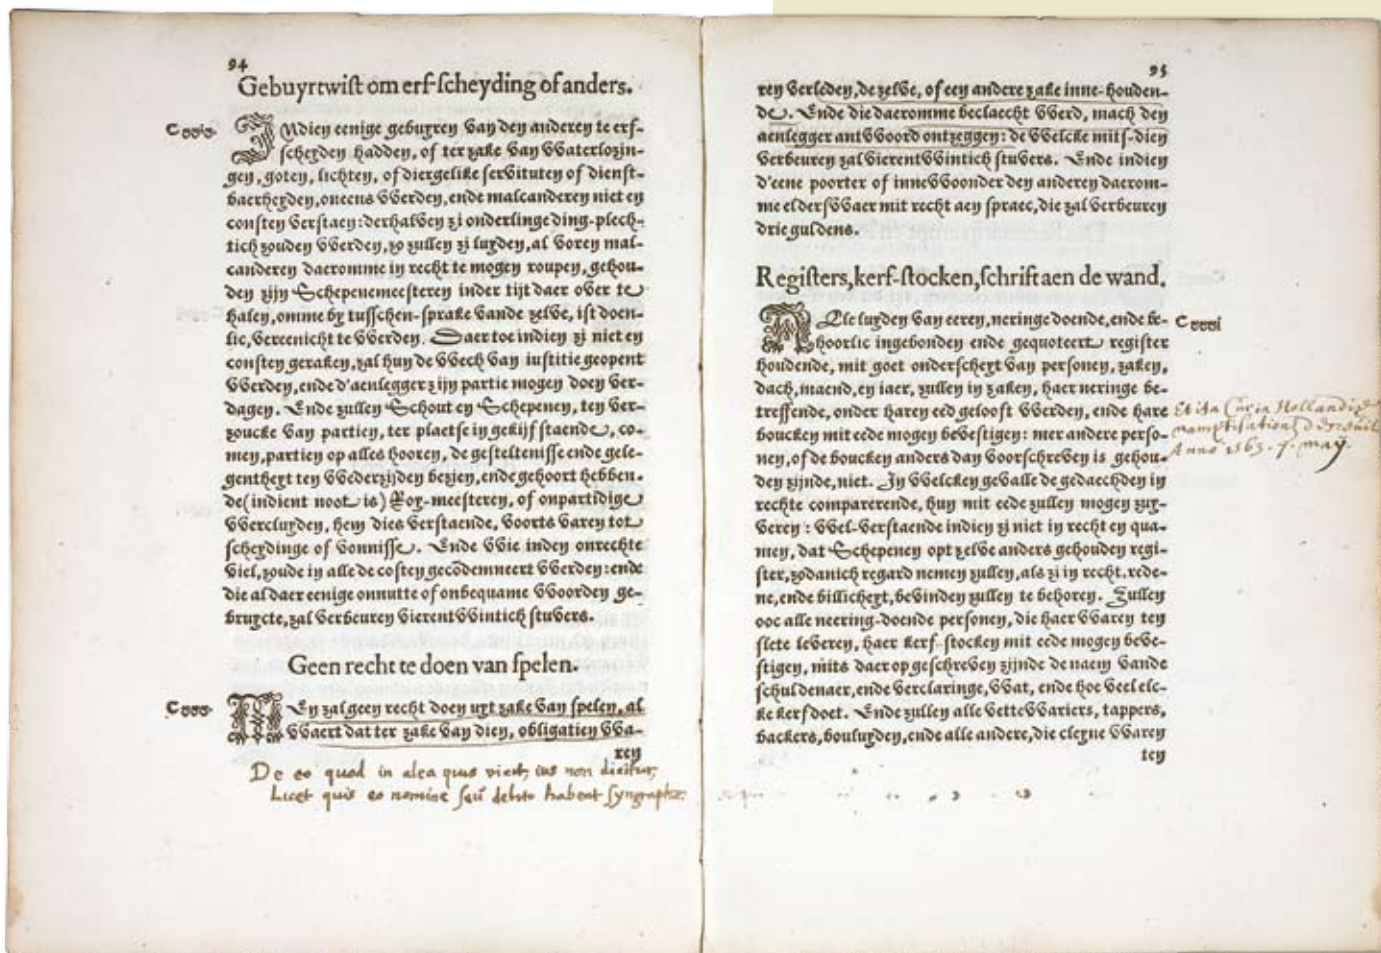 94
Gebuyrtwist om erf-scheyding of anders.
C xxix.
INdien eenige gebuyren van den anderen te erf-
scheyden hadden, of ter zake van waterlozin-
gen, goten, lichten, of diergelike servituten of dienst-
baerheyden, oneens werden, ende malcanderen niet en
consten verstaen: derhalven zi onderlinge ding-plech-
tich zouden werden, zo zullen zi luyden, al voren mal-
canderen daeromme in recht te mogen roupen, gehou-
den zijn Schepenemeesteren inder tijt daer over te
halen, omme by tusschen-sprake vande zelve, ist doen-
lic, vereenicht te werden. Daer toe indien zi niet en
consten geraken, zal huy de wech van iustitie geopent
werden, ende d'aenlegger zijn partie mogen doen ver-
dagen. Ende zullen Schout en Schepenen, ten ver-
zoucke van partien, ter plaetse in gekijf staende, co-
men, partien op alles hooren, de gesteltenisse ende gele-
gentheyt ten wederzijden bezien, ende gehoort hebben-
de (indient noot is) Roy-meesteren, of onpartidige
wercluyden, hem dies verstaende, voorts varen tot
scheydinge of vonnisse. Ende wie inden onrechte
viel, zoude in alle de costen gecōdemneert werden: ende
die aldaer eenige onnutte of onbequame woorden ge-
bruycte, zal verbeuren vierentwintich stuvers.
Geen recht te doen van spelen.
C xxx.
MEn zal geen recht doen uyt zake van spelen, al
waert dat ter zake van dien, obligatien wa-
ren
De eo quod in alea quis vicit, ius non dicitur,
Licet quis eo nomine debito habeat syngraphā.
95
ren verleden, de zelve, of een andere zake inne-houden-
de. Ende die daeromme beclaecht werd, mach den
aenlegger antwoord ontzeggen: de welcke mits-dien
verbeuren zal vierentwintich stuvers. Ende indien
d'eene poorter of innewoonder den anderen daerom-
me elderswaer mit recht aen spraec, die zal verbeuren
drie guldens.
Registers, kerf-stocken, schrift aen de wand.
C xxxi
ALle luyden van eeren, neringe doende, ende be-
hoorlic ingebonden ende gequoteert register
houdende, mit goet onderscheyt van personen, zaken,
dach, maend, en iaer, zullen in zaken, haer neringe be-
treffende, onder haren eed gelooft werden, ende hare
boucken mit eede mogen bevestigen: mer andere perso-
nen, of de boucken anders dan voorschreven is gehou-
den zijnde, niet. In welcken gevalle de gedaechden in
rechte comparerende, huy mit eede zullen mogen zuy-
veren: wel-verstaende indien zi niet in recht en qua-
men, dat Schepenen opt zelve anders gehouden regi-
ster, zodanich regard nemen zullen, als zi in recht, rede-
ne, ende billicheyt, bevinden zullen te behoren. Zullen
ooc alle neering-doende personen, die haer waren ten
slete leveren, haer kerf-stocken mit eede mogen beve-
stigen, mits daer op geschreven zijnde de naem vande
schuldenaer, ende verclaringe, wat, ende hoe veel elc-
ke kerf doet. Ende zullen alle vettewariers, tappers,
backers, bouluyden, ende alle andere, die cleyne waren
ten
Et ita Curia Hollandiæ
Anno 1563. 7. maij.